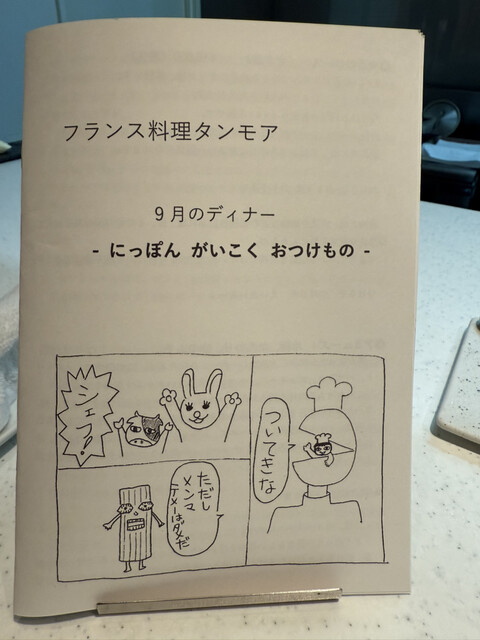 フランス料理タンモア
9月のディナー
- にっぽん がいこく おつけもの -
シェフ!
ついてきな
ただし
メンマ
テメーはダメだ